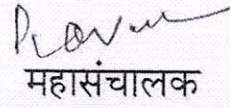 महासंचालक